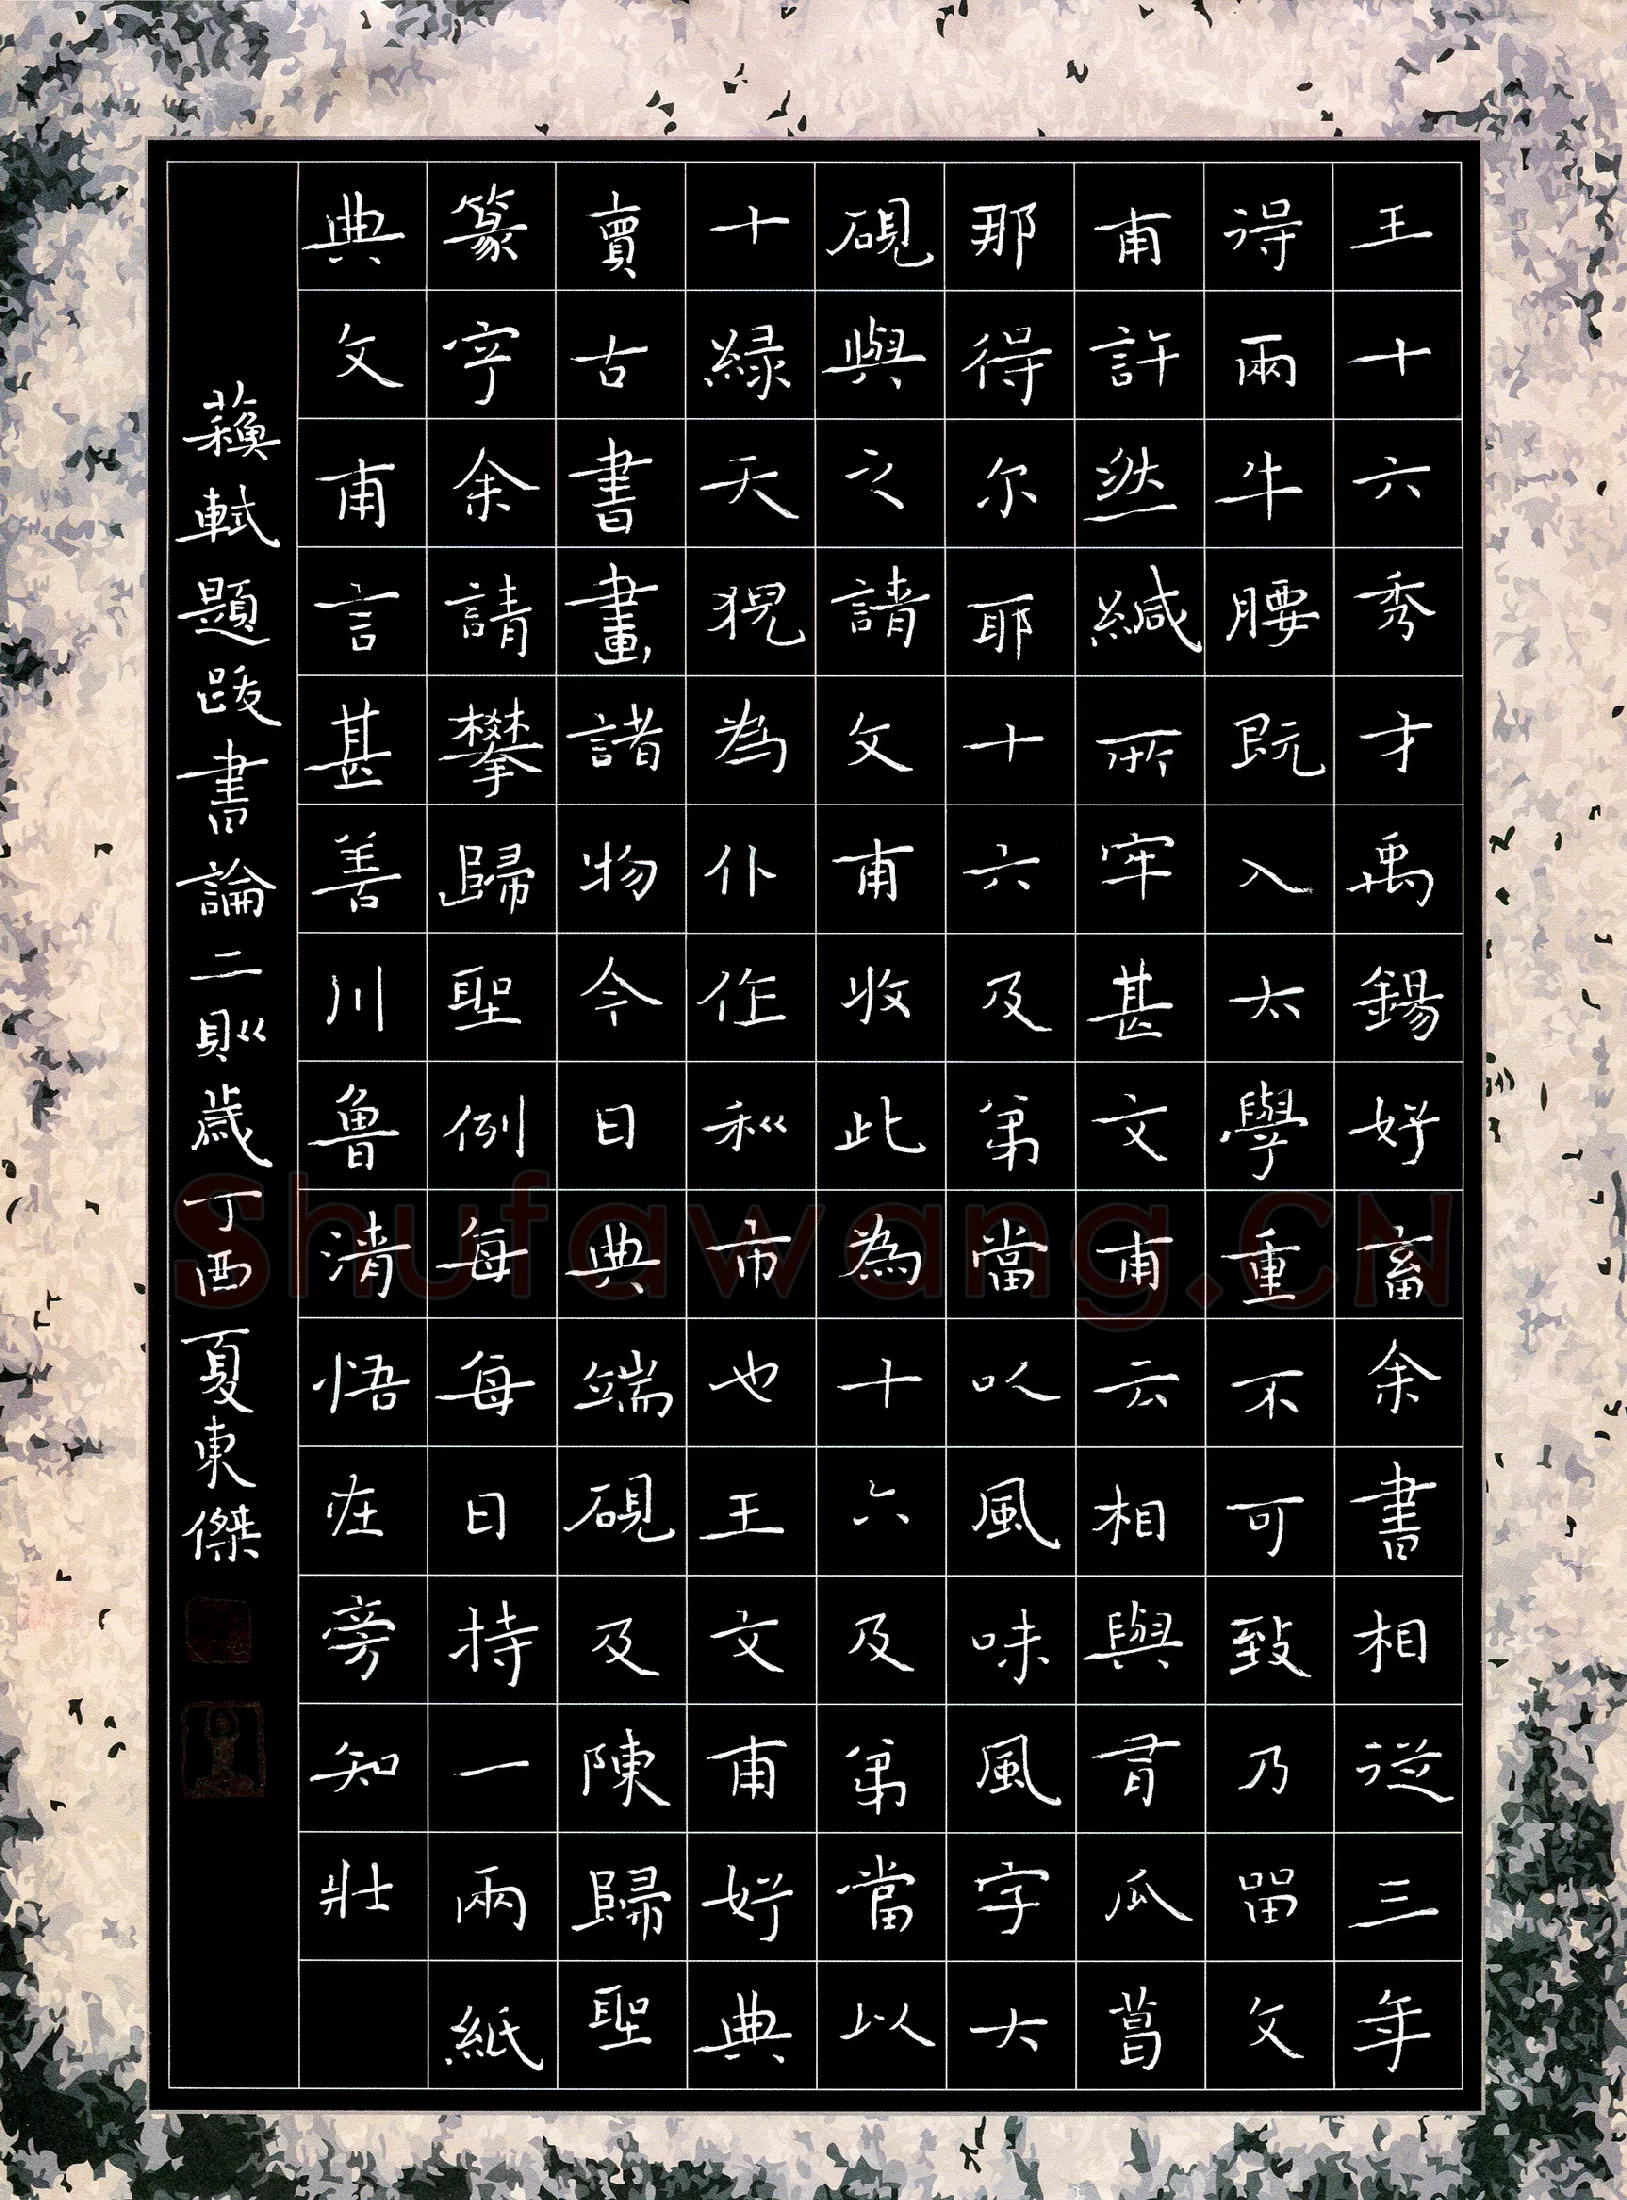 王十六秀才禹錫好畜余書相從三年
得兩牛腰既入太學重不可致乃留文
甫許然緘所牢甚文甫云相與有瓜葛
那得尔耶十六及第當以風味風字大
硯與之請文甫收此為十六及第當以
十綠天猊為仆作利市也王文甫好典
賣古書畫諸物今日典端硯及陳歸聖
篆字余請攀歸聖例每每日持一兩紙
典文甫言甚善川魯清悟在旁知壯
蘇軾題跋書論二則歲丁酉夏東傑
Shufawang.CN